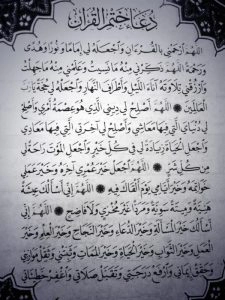 دُعَاءُ خَتْمِ الْقُرْآنِ
اَللّٰهُمَّ ارْحَمْنِي بِالْقُرْءَانِ وَاجْعَلْهُ لِي إِمَامًا وَنُورًا وَهُدًى
وَرَحْمَةً اَللّٰهُمَّ ذَكِّرْنِي مِنْهُ مَا نَسِيتُ وَعَلِّمْنِي مِنْهُ مَا جَهِلْتُ
وَارْزُقْنِي تِلَاوَتَهُ آنَاءَ اللَّيْلِ وَأَطْرَافَ النَّهَارِ وَاجْعَلْهُ لِي حُجَّةً يَارَبَّ
الْعَالَمِينَ ۞ اَللّٰهُمَّ أَصْلِحْ لِي دِينِي الَّذِي هُوَ عِصْمَةُ أَمْرِي وَأَصْلِحْ
لِي دُنْيَايَ الَّتِي فِيهَا مَعَاشِي وَأَصْلِحْ لِي آخِرَتِي الَّتِي فِيهَا مَعَادِي
وَاجْعَلِ الْحَيَاةَ زِيَادَةً لِي فِي كُلِّ خَيْرٍ وَاجْعَلِ الْمَوْتَ رَاحَةً لِي
مِنْ كُلِّ شَرٍّ ۞ اَللّٰهُمَّ اجْعَلْ خَيْرَ عُمْرِي آخِرَهُ وَخَيْرَ عَمَلِي
خَوَاتِمَهُ وَخَيْرَ أَيَّامِي يَوْمَ أَلْقَاكَ فِيهِ ۞ اَللّٰهُمَّ إِنِّي أَسْأَلُكَ عِيشَةً
هَنِيَّةً وَمِيتَةً سَوِيَّةً وَمَرَدًّا غَيْرَ مُخْزٍ وَلَا فَاضِحٍ ۞ اَللّٰهُمَّ إِنِّي
أَسْأَلُكَ خَيْرَ الْمَسْأَلَةِ وَخَيْرَ الدُّعَاءِ وَخَيْرَ النَّجَاحِ وَخَيْرَ الْعِلْمِ وَخَيْرَ
الْعَمَلِ وَخَيْرَ الثَّوَابِ وَخَيْرَ الْحَيَاةِ وَخَيْرَ الْمَمَاتِ وَثَبِّتْنِي وَثَقِّلْ مَوَازِينِي
وَحَقِّقْ إِيمَانِي وَارْفَعْ دَرَجَتِي وَتَقَبَّلْ صَلَاتِي وَاغْفِرْ خَطِيئَاتِي